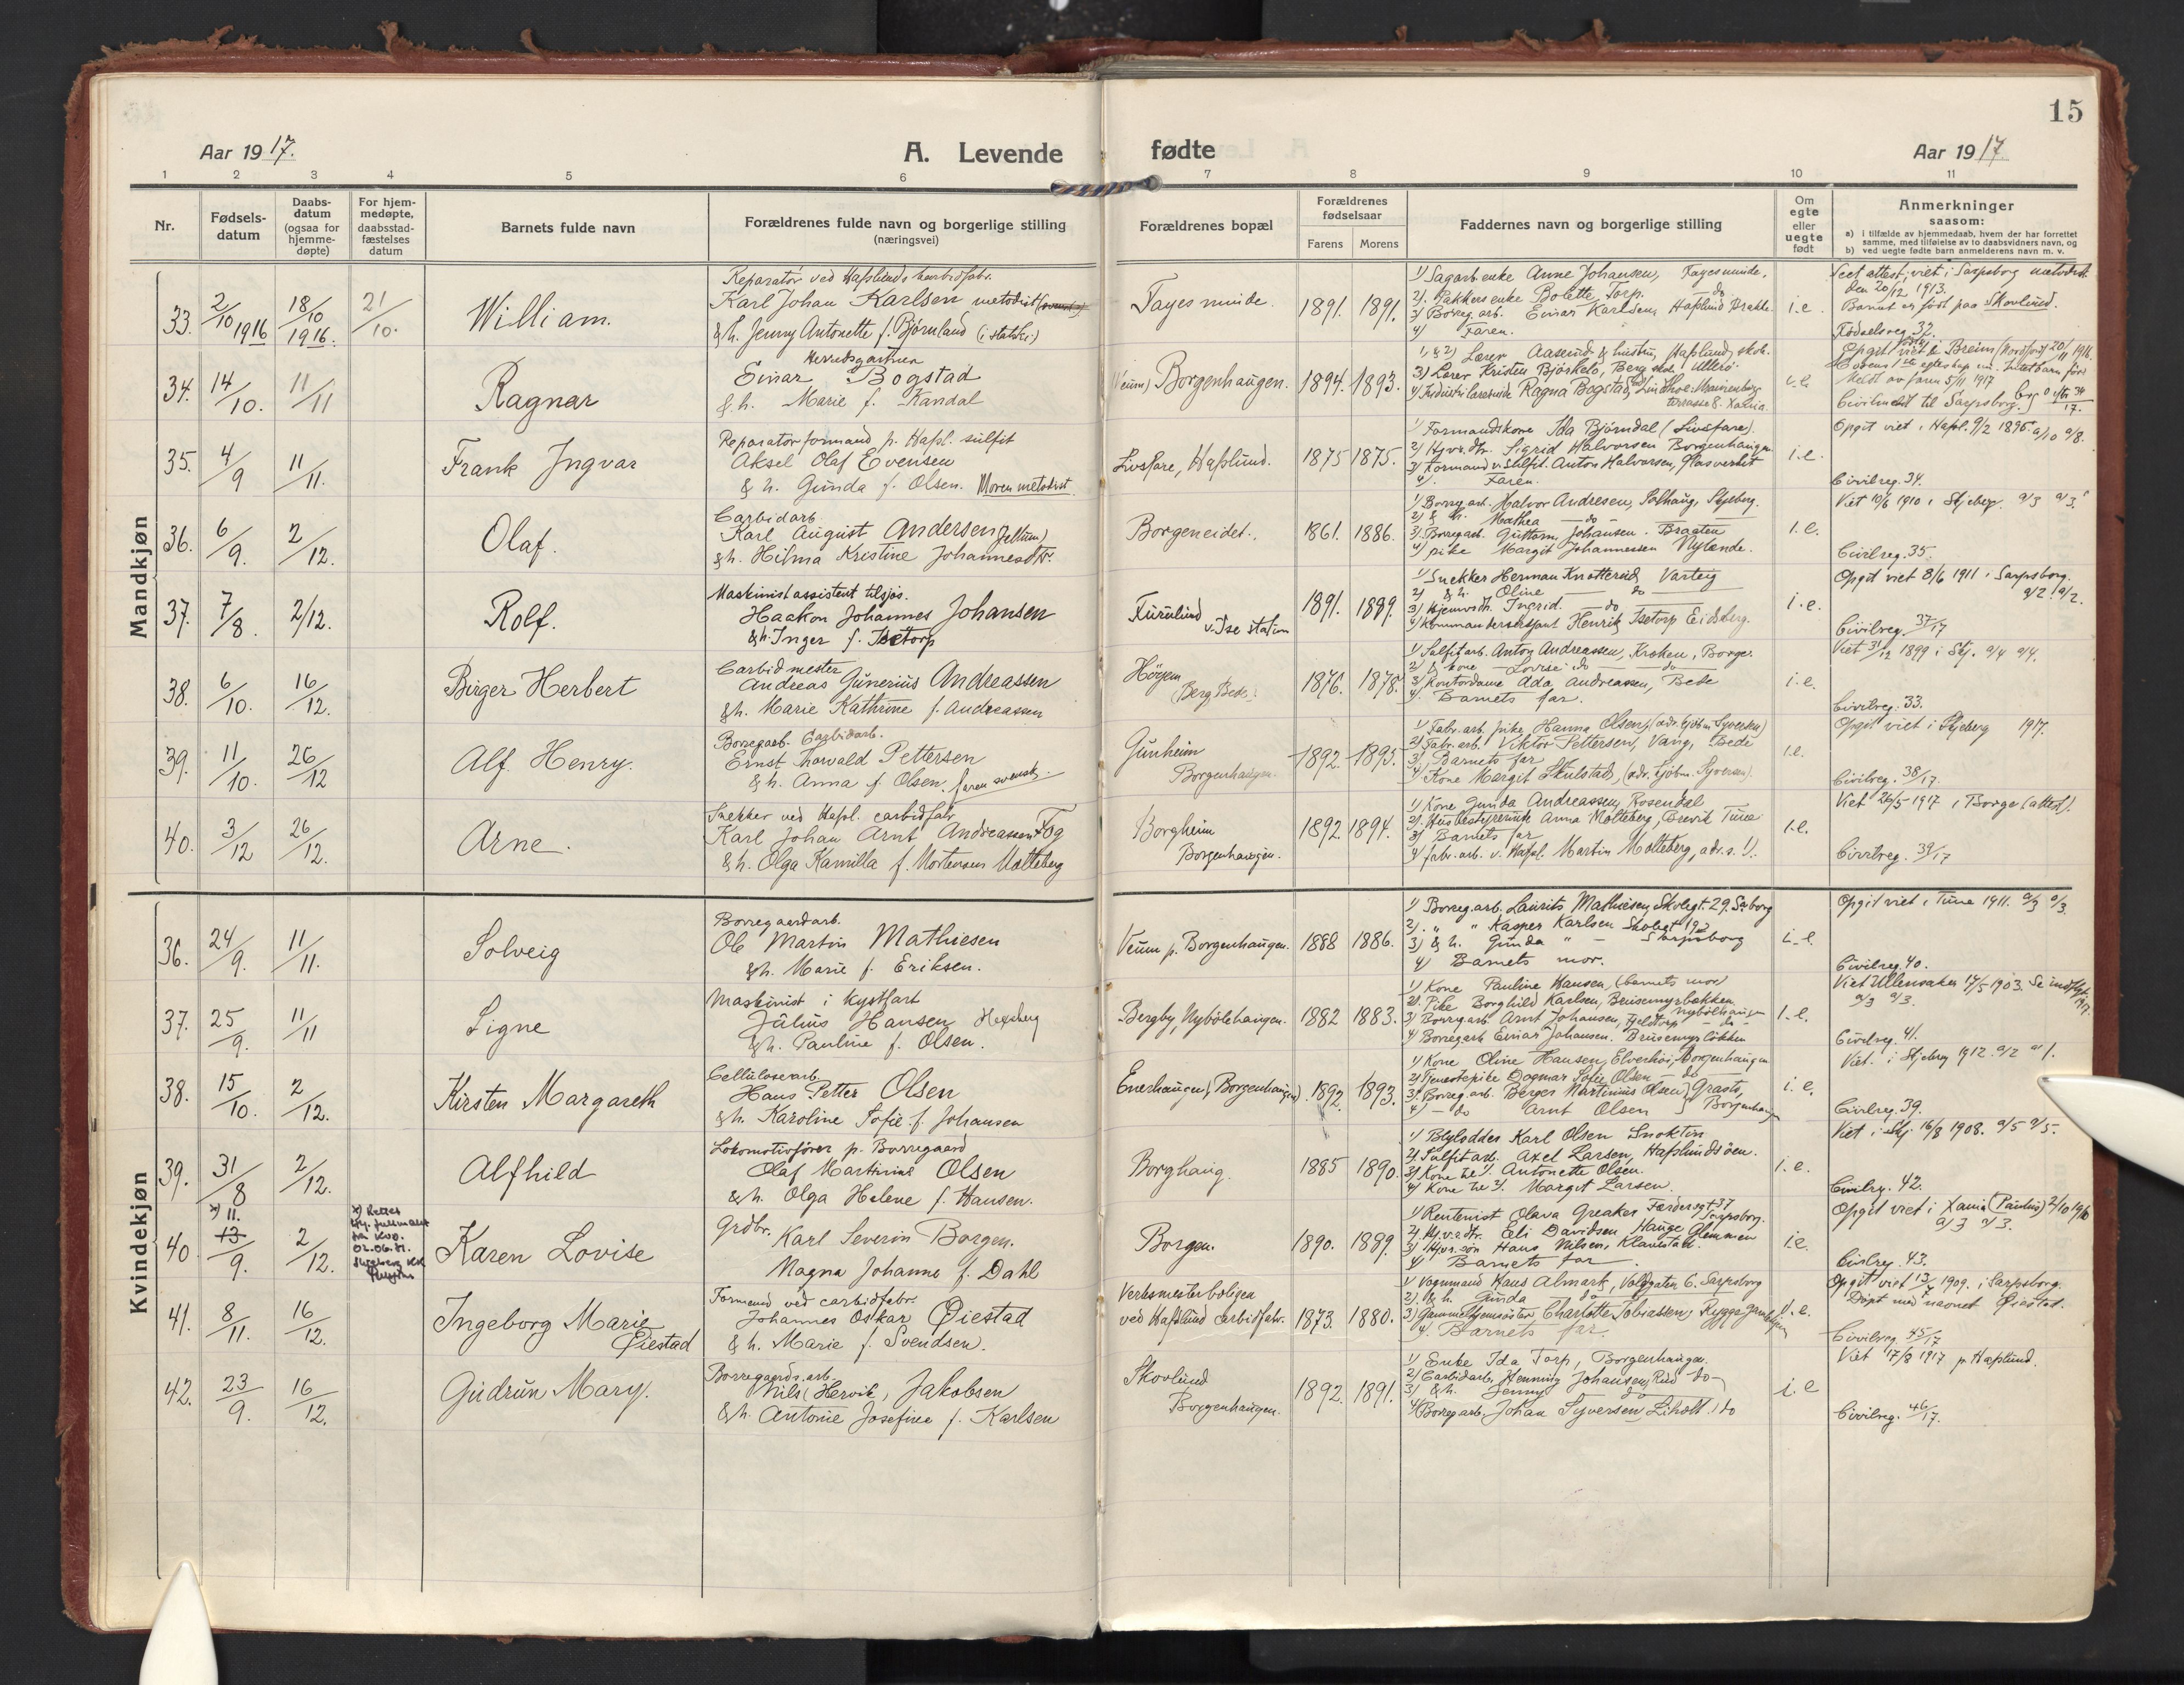 15
Aar 1917.
A. Levende
fødte
Aar 1917
1 2 3 4 5 6 7 8 9 10 11
Nr.
Fødsels-
datum
Daabs-
datum
(ogsaa for
hjemme-
døpte)
For hjem-
medøpte,
daabsstad-
fæstelses
datum
Barnets fulde navn
Forældrenes fulde navn og borgerlige stilling
(næringsvei)
Forældrenes bopæl
Forældrenes
fødselsaar
Farens Morens
Faddernes navn og borgerlige stilling
Om
egte
eller
uegte
født
Anmerkninger
saasom:
a) i tilfælde av hjemmedaab, hvem der har forrettet
samme, med tilføielse av to daabsvidners navn, og
b) ved uegte fødte barn anmelderens navn m. v.
Mandkjøn
33. 2/10 1916 18/10 1916. 21/10. William.
Reparatør ved Hafslunds karbidfabr.
Karl Johan Karlsen metodist
& h. Jenny Antonette f. Bjørnland (i statski.)
Tayes minde. 1891. 1891.
1) Sagarb. enke Anne Johansen, Tayesminde.
2) Pakkers enke Bolette Torp. do
3) Borreg. arb. Einar Karlsen, Hafslund
4) Faren.
i.e.
viet i Sarpsborg metodist.
den 20/12 1913.
Barnet er født paa Skovlund.
Fødselsreg. 32.
34. 14/10. 11/11 Ragnar
Herredsgartner
Einar Bogstad
& h. Marie f. Kandal
(Veum) Borgenhaugen. 1894. 1893.
1) & 2) Lærer Aaserud & hustru, Hafslund skob.
3) Lærer Kristen Bjørkelo, Berg skole, Ullerø.
4) Industrilærerinde Ragna Bogstad
Opgit viet i Breim (Nordfjord) 20/11 1916.
Meldt av faren 5/11 1917
35. 4/9 11/11. Frank Ingvar
Reparatør formand p. Hafsl. sulfit
Aksel Olaf Evensen
& h. Gunda f. Olsen. Moren metodist
Livsfare, Hafslund. 1875 1875.
1) Formandskone Ida Bjørndal (Livsfare).
2) Hjv. dtr. Sigrid Halvorsen Borgenhaugen
3) Formand v. Sulfit. Anton Halvorsen, Glasverket
4) Faren.
i.e.
Opgit viet i Hafsl. 9/2 1895 a/10 a/8.
Civilreg. 34.
36. 6/9. 2/12. Olaf.
Carbidarb
Karl August Andersen
& h. Hilma Kristine Johannesdtr.
Borgeneidet. 1861. 1886.
1) Borreg arb. Halvor Andresen, Solhaug, Skjeberg.
2) & h. Mathea do
3) Borreg arb. Guttorm Johansen. Braaten
4) pike Margit Johannessen Nylænde.
i.e.
Viet 10/6 1910 i Skjeberg. a/3 a/3.
Civilreg. 35.
37. 7/8. 2/12. Rolf.
Maskinistassistent tilsjøs.
Haakon Johannes Johansen
& h. Inger f. Isetorp
Furulund
v. Ise station
1891. 1889.
1) Snekker Herman Knatterud Varteig
2) & h. Oline do
3) Hjemvdtr. Ingrid. do
4) Kommandersersjant Henrik Isetorp Eidsberg.
i.e.
Opgit viet 8/6 1911 i Sarpsborg.
a/2. a/2.
Civilreg. 37/17
38. 6/10. 16/12. Birger Herbert
Carbid mester
Andreas Gunerius Andreassen
& h. Marie Kathrine f. Andreassen
Høgen
(Berg Bede.
1876. 1878.
1) Sulfitarb. Anton Andreassen, Kroken, Borge.
2) & kone Lovise do do
3) Kontordame Ada Andreassen, Bede
4) Barnets far.
i.e.
Viet 31/12 1899 i Skj. a/4 a/4.
Civilreg. 33.
39. 11/10. 26/12 Alf Henry.
Borregaarb. Carbidarb.
Ernst Thorvald Pettersen
& h. Anna f. Olsen. faren svensk.
Gunheim
Borgenhaugen.
1892. 1895.
1) Fabr. arb. pike Hanna Olsen,
2) Fabr. arb. Viktor Pettersen, Vang, Bede
3) Barnets far
4) Kone Margit Skulstad,
i.e.
Opgit viet i Skjeberg 1917.
Civilreg. 38/17.
40. 3/12 26/12. Arne.
Snekker ved Hafsl. carbidfabr
Karl Johan Arnt Andreassen Fog
& h. Olga Kamilla f. Mortensen Molteberg
Borgheim
Borgenhaugen.
1892 1894.
1) Kone Gunda Andreassen, Rosendal
2) Husbestyrerinde Anna Molteberg, Brevik Tune
3) Barnets far
4) fabr. arb. v. Hafsl. Martin Molteberg, adr. s. 1).
i.e.
Viet 26/5 1917 i Borge (attest).
Civilreg. 39/17
Kvindekjøn
36. 24/9. 11/11. Solveig
Borregaardarb.
Ole Martin Mathiesen
& h. Marie f. Eriksen.
Veum p. Borgenhaugen. 1888 1886.
1) Borreg. arb. Laurits Mathiesen, Skolegt. 29. Sarpsborg
2) " " Kasper Karlsen Skolegt
3) & h. Gunda " - Sarpsborg
4) Barnets mor.
i.e.
Opgit viet i Tune 1911. a/3 a/3.
Civilreg. 40.
37. 25/9. 11/11 Signe
Maskinist i kystfart
Julius Hansen
& h. Pauline f. Olsen.
Bergby, Nybølehaugen. 1882 1883.
1) Kone Pauline Hansen, (barnets mor)
2) Pike Borghild Karlsen, Brusemyrbakken, Nybølehaugen
3) Borregarb. Arnt Johansen, Fjeldtorp - do -
4) Borregarb Einar Johansen. Brusemyrløkken
i.e.
Viet Ullensaker 17/5 1903.
a/3 a/3.
Civilreg. 41.
38. 15/10. 2/12. Kirsten Margareth
Cellulosearb.
Hans Petter Olsen
& h. Karoline Sofie f. Johansen
Enerhaugen, (Borgenhaugen). 1892. 1893.
1) Kone Oline Hansen, Elverhøi, Borgenhaugen
2) Tjenestepike Dagmar Sofie Olsen do
3) Borreg. arb. Berger Martinius Olsen } Grastø,
4) - do Arnt Olsen } Borgenhaugen
i.e.
Viet. i Skjeberg 1912. a/2 a/1.
Civilreg. 39.
39. 31/8 2/12. Alfhild
Lokomotivfører p. Borregaard
Olaf Martinius Olsen
& h. Olga Helene f. Hansen.
Borghaug. 1885 1890.
1) Blylodder Karl Olsen
2) Sulfitarb. Axel Larsen, Hafslundsøen.
3) Kone til 1). Antonette Olsen.
4) Kone til 2). Margit Larsen.
i.e.
Viet i Skj. 16/8 1908. a/5 a/5.
Civilreg. 42.
40 x) 11. 13/9. 2/12. Karen Lovise
x) Rettet
02.06.81.
Grdbr. Karl Severin Borgen.
Magna Johanne f. Dahl
Borgen. 1890. 1889.
1) Rentenist Olava Greaker Færdersgt 37 Sarpsborg.
2) Hjv. dtr. Eli Davidsen Hauge Glemmen
3) Hjv. søn Hans Nilsen, Klavestad.
4) Barnets far
i.e.
Opgit viet i Xania (Paulus) 2/10 1916
a/3 a/3.
Civilreg. 43.
41. 8/11. 16/12. Ingeborg Marie
Øiestad
Formand ved carbidfabr.
Johannes Oskar Øiestad
& h. Marie f. Svendsen.
Verksmesterboligen
ved Hafslund carbidfabr. 1873. 1880.
1) Vognmand Hans Almark, Voldgaten 6. Sarpsborg
2) & h. Gunda do
3) Gammelhjemsøster Charlotte Tobiassen, Rygge Gamlehjem
4) Barnets far.
i.e.
Opgit viet 13/7 1909. i Sarpsborg.
Døpt med navnet Øiestad.
Civilreg. 45/17
42. 23/9. 16/12. Gudrun Mary.
Borregaards. arb.
Nils (Hervik) Jakobsen
& h. Antonie Josefine f. Karlsen
Skovlund
Borgenhaugen.
1892. 1891.
1) Enke Ida Torp, Borgenhaugen.
2) Carbidarb. Henning Johansen, Rød do
3) & h. Jenny do
4) Borreg arb. Johan Syversen Liholt. do
i.e
Viet 17/8 1917 p. Hafslund.
Civilreg. 46/17.